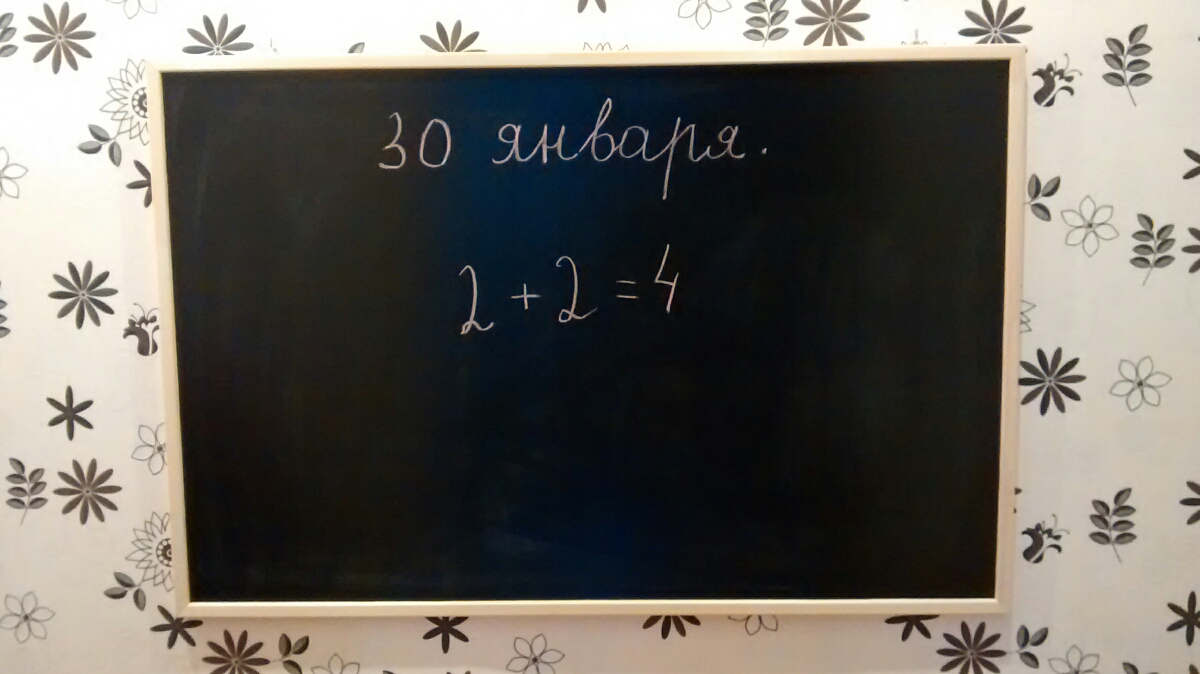 30 января.
2 + 2 = 4